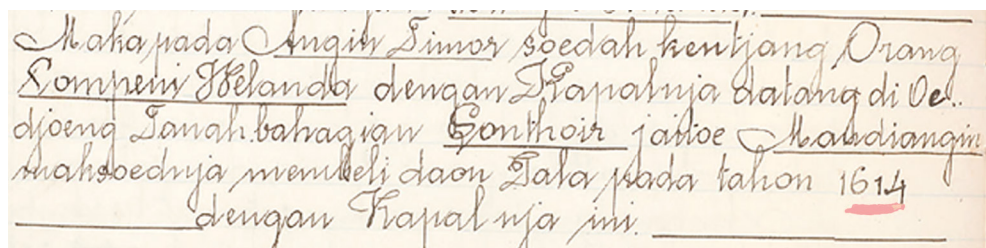 Maka pada Angin Timor soedah kentjang Orang
Kompeni Welanda dengan Kapalnja datang di Oe..
djoeng Tanah bahagian Gonthoir jaitoe Mandiangin
maksoednja membeli daon Pala pada tahon 1614
dengan Kapal nja ini.